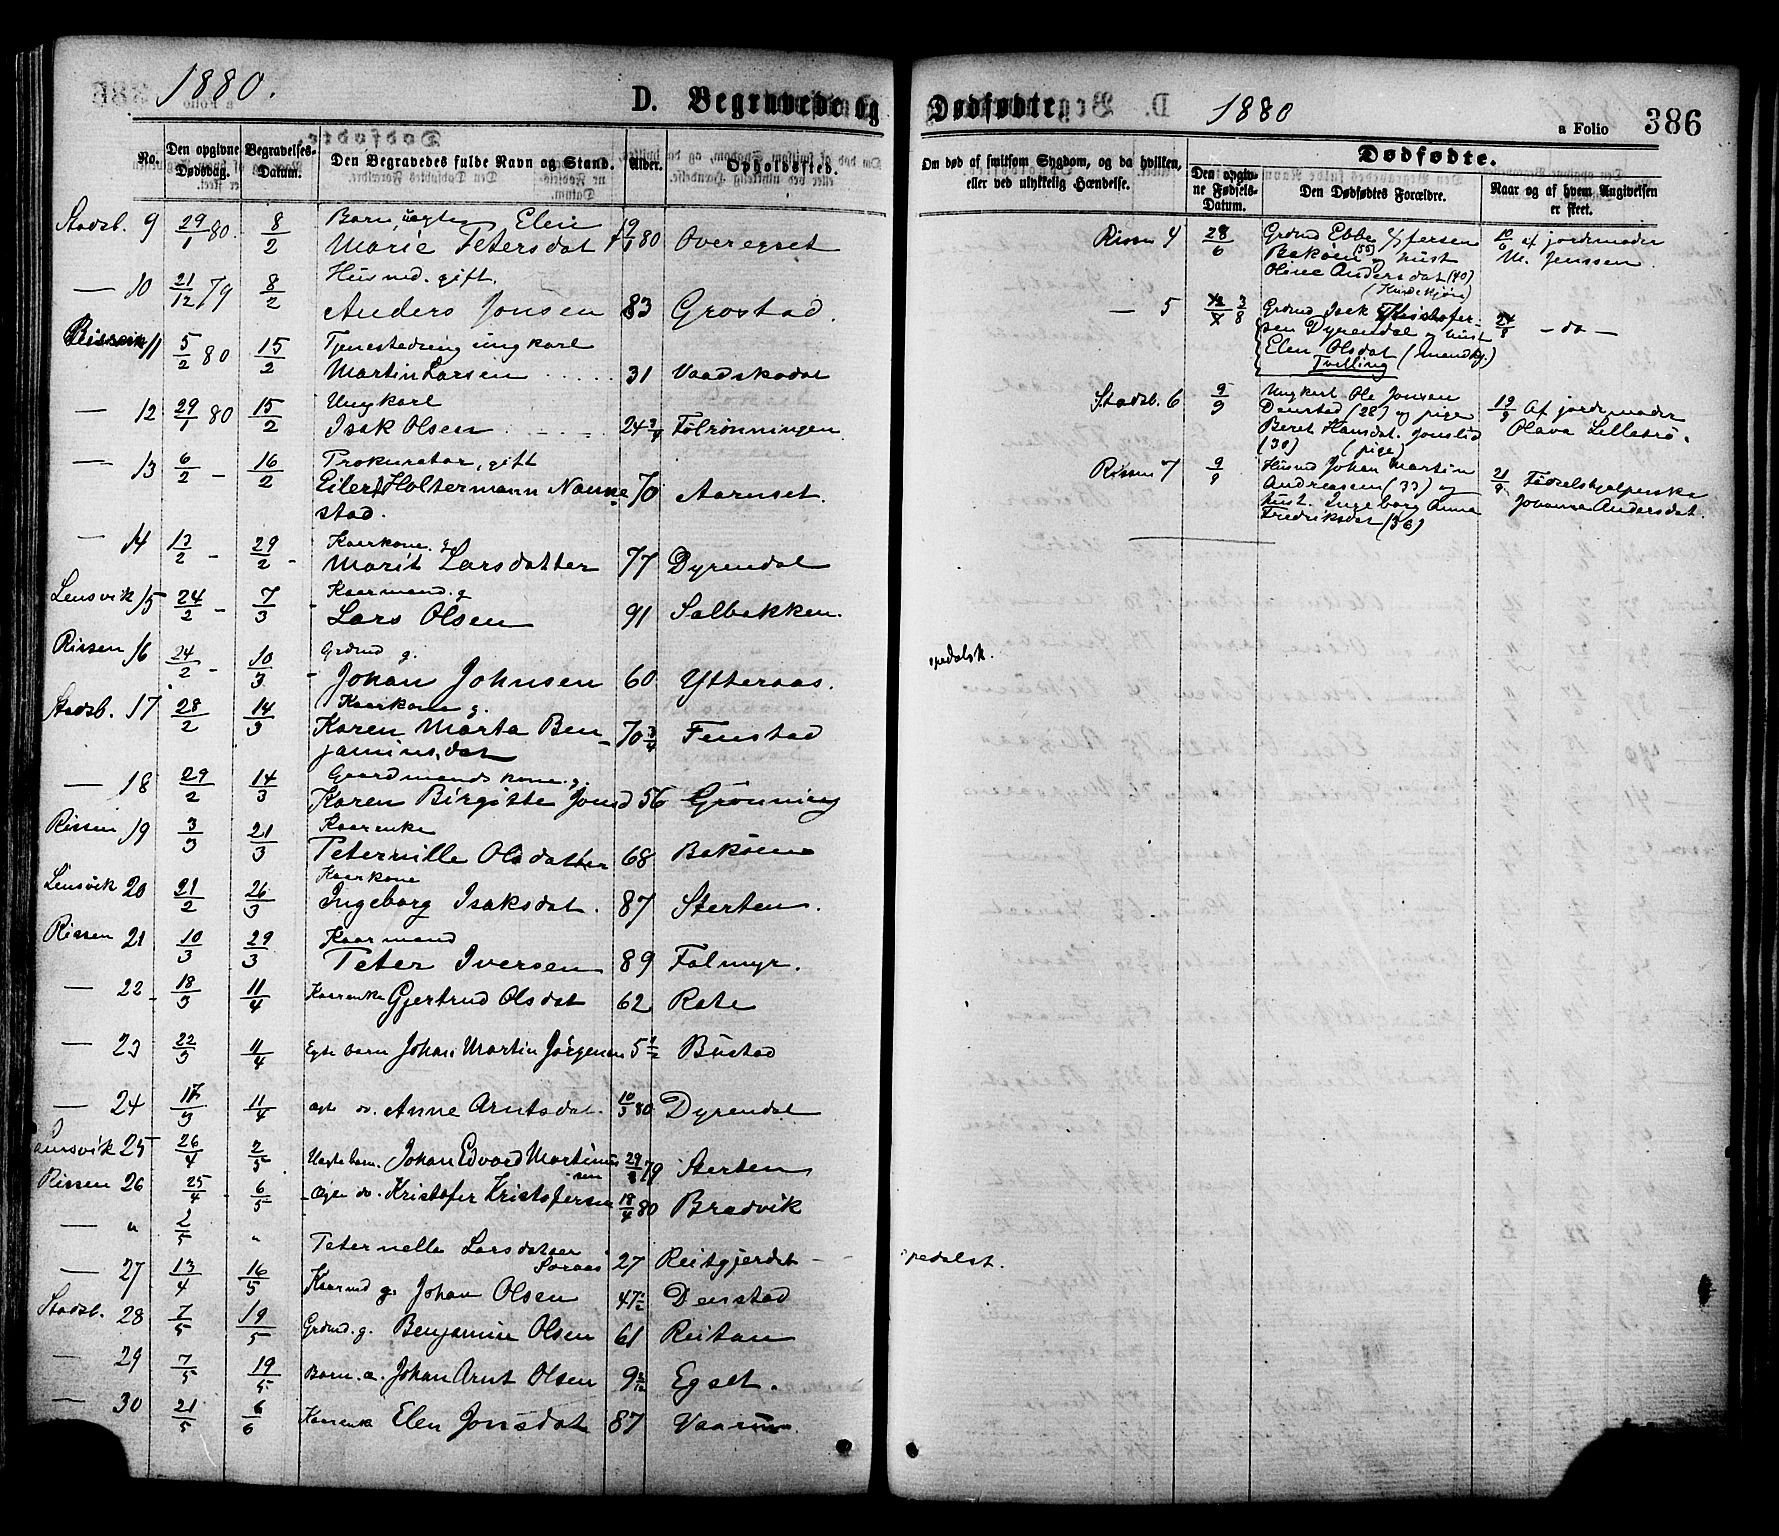 1880.
D. Begravede og
No.
Den opgivne Dødsdag.
Begravelses-Datum.
Den Begravedes fulde Navn og Stand.
Alder.
Opholdssted.
Stadsb. 9 29/1 80. 8/2 Barn, uægte Elen
Marie Petersdat 80 Overegset
— 10 21/12 79 8/2 Husmd. gift.
Anders Jonsen 83 Grøstad.
11 5/2 80 15/2 Tjenestedreng ungkarl
Martin Larsen 31 Vaadskadal
— 12 29/1 80 15/2 Ungkarl
Isak Olsen 24 3/4 Følrønningen
— 13 6/2 – 16/2 Prokurator, gift
Eilert Holtermann Nanne
stad. 70 Aarnset.
— 14 13/2 – 29/2 – Kaarkone. g
Marit Larsdatter 77 Dyrendal
Lensvik 15 24/2 – 7/3 Kaarmand. g
Lars Olsen 91 Selbekken.
Rissen 16 24/2 – 10/3 Grdmd g.
Johan Johnsen 60 Ytteraas.
Stadsb. 17 28/2 14/3 Kaarkone g.
Karen Marta Ben-
jaminsdat 70 3/4 Fenstad
— 18 29/2 14/3 Gaardmands kone. g.
Karen Birgitte Jonsd 56 Grønning
Rissen 19 3/3 21/3 Kaarenke
Peternille Olsdatter 68 Bakøen
Lensvik 20 21/2 26/3 Kaarkone
Ingeborg Isaksdat. 87 Sterten.
Rissen 21 10/3 29/3 Kaarmand
Peter Iversen 89 Falmyr.
— 22 18/3 11/4 Kaarenke Gjertrud Olsdat 62 Rate
— 23 22/3 11/4 Egte barn Johan Martin Jørgensen 5 1/2 Bustad
— 24 17/3 11/4 ægte do. Anne Arntsdat. 10/3 80 Dyrendal
Lensvik 25 26/4 2/5 Uægte barn. Johan Edvard Martinus
sen 29/8 79 Sterten
Rissen 26 25/4 – 6/5 – Ægte do. Kristofer Kristofersen 18/4 80 Bradvik
— " 2/5 " Peternelle Larsdatter
Søraas 27 Reitgjerdet –
— 27 13/4 16/5 Kaarmd g. Johan Olsen 47 1/2 Denstad
Stadsb. 28 7/5 19/5 Grdmd. g. Benjamin Olsen 61 Reitan
— 29 7/5 19/5 Barn. æ. Johan Arnt Olsen 9 Egset.
— 30 21/5 6/6 Kaarenke Elen Jonsdat 87
Dødfødte
1880
a Folio 386
Om død af smitsom Sygdom, og da hvilken,
eller ved ulykkelig Hændelse.
Dødfødte.
Den opgivne Fødsels-Datum.
Den Dødfødtes Forældre.
Naar og af hvem Angivelsen er skeet.
Rissen 4 28/6 Grdmd Ebbe
Bakøen (55) og hust
Oline Andersdat (40)
(Kvindekjøn)
af jordemoder
M. Jenssen.
— 5 3/8 Grdmd Isak Christofer-
sen Dyrendal og hust
Elen Olsdat (Mandkj.)
Tvilling
— do —
Stadsb. 6 9/9 Ungkarl Ole Jonsen
Denstad (28) og pige
Beret Hansdat. Jonslid
(30) (pige)
19/9 Af jordemoder
Olava Lilletrø.
Rissen 7 9/9 Husmd Johan Martin
Andreasen (33) og
hust. Ingeborg Anna
Fredriksdat (36)
21/9 Fødselshjælperske
Johanna Andersdat.
spedalsk.
spedalsk.